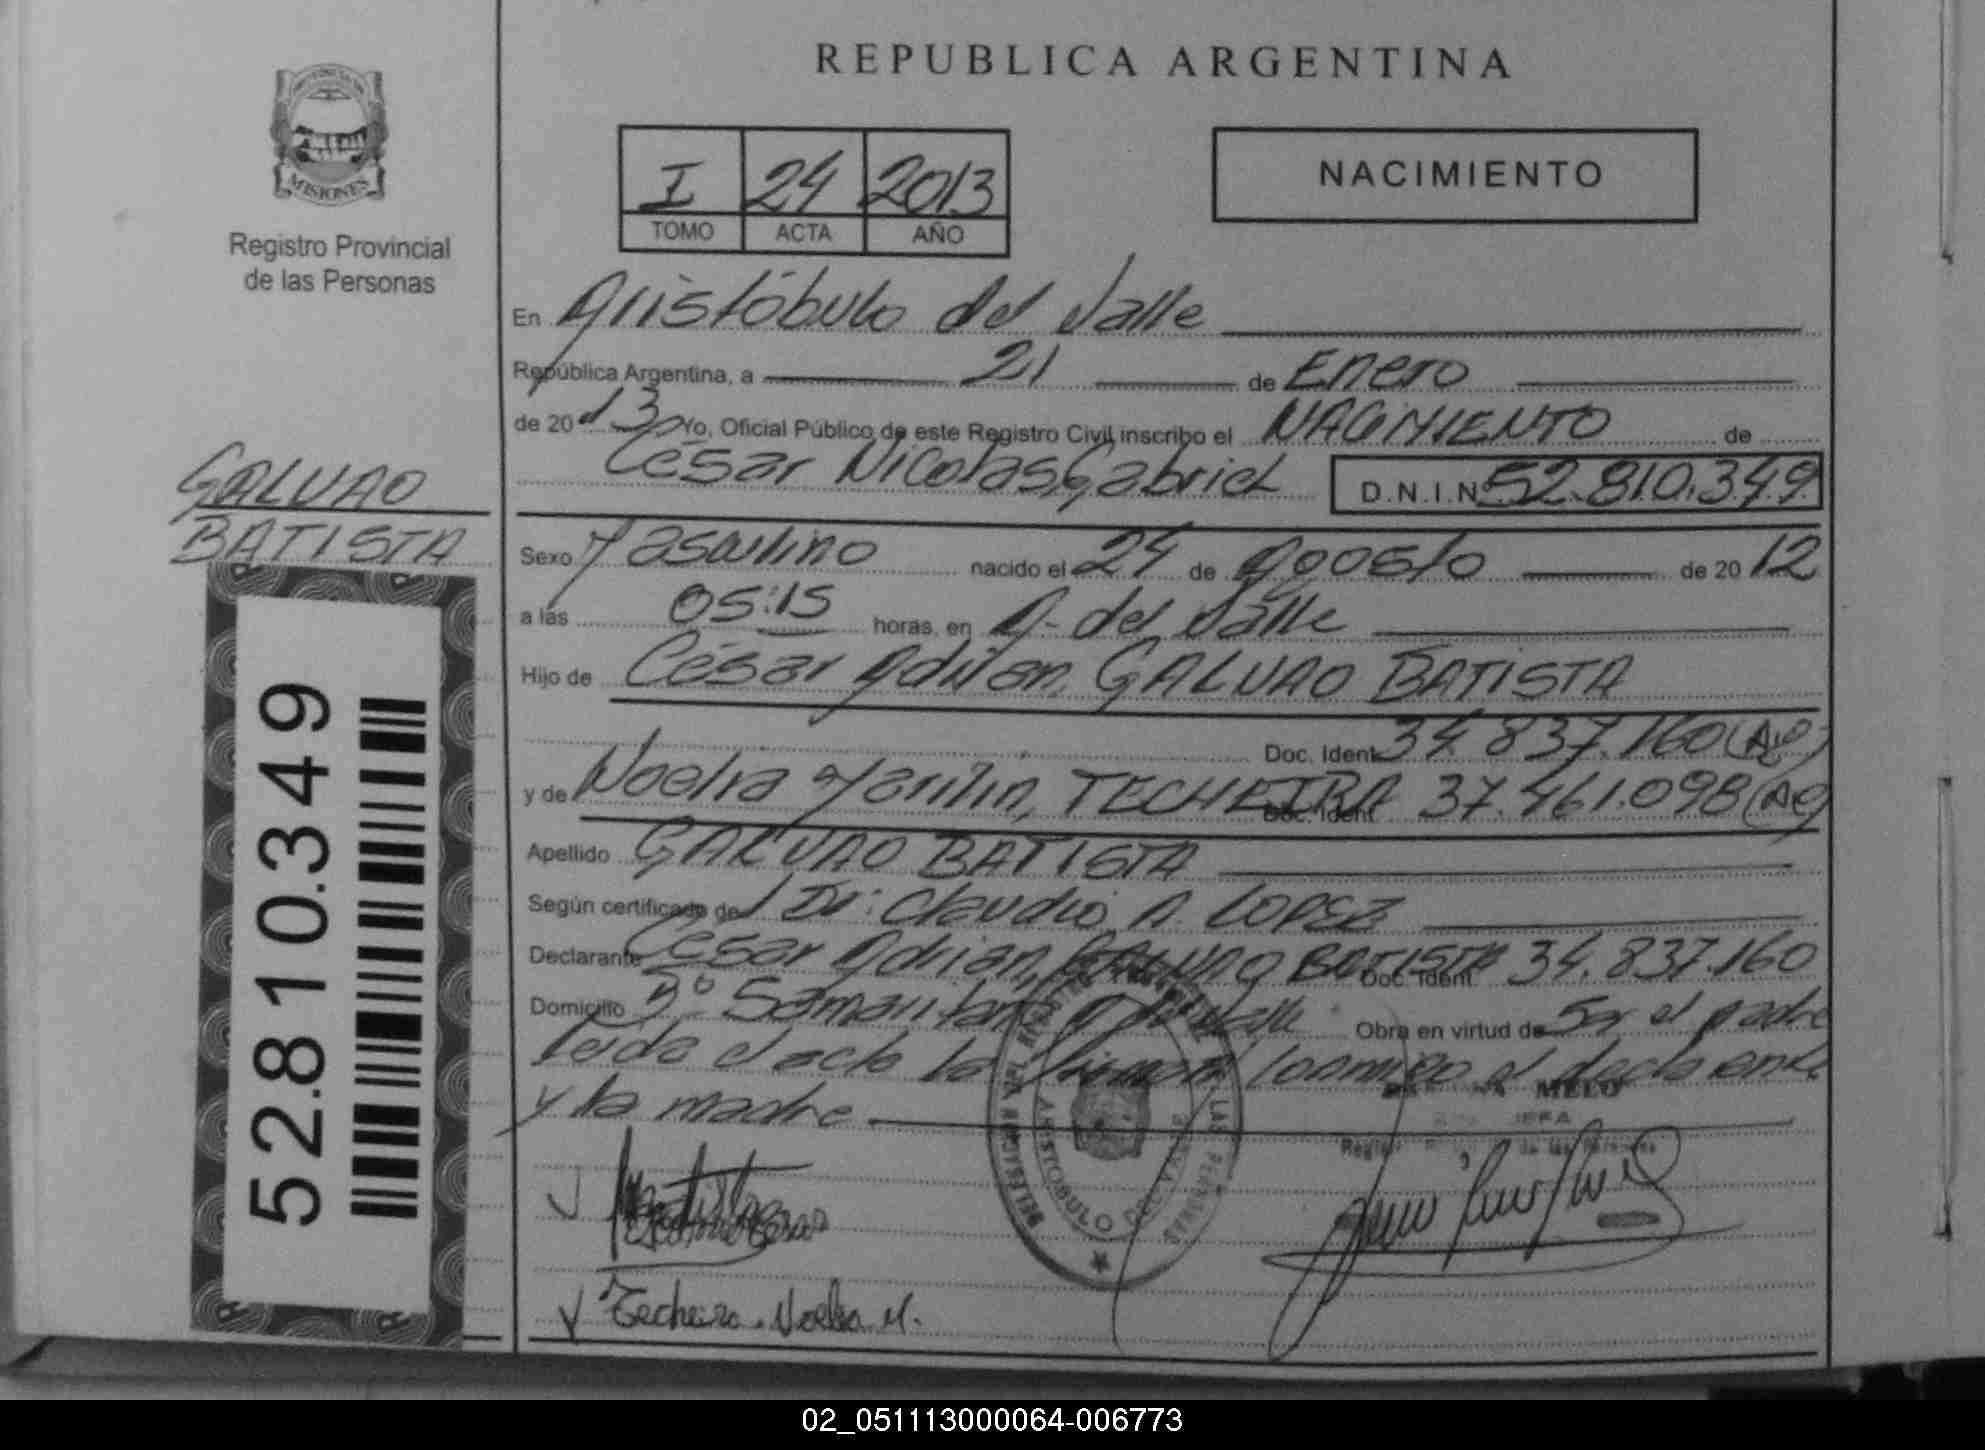 REPUBLICA ARGENTINA
MISIONES
Registro Provincial
de las Personas
I 24 2013
TOMO ACTA AÑO
NACIMIENTO
En Aristóbulo del Valle
República Argentina, a 21 de Enero
de 20 13 Yo, Oficial Público de este Registro Civil inscribo el NACIMIENTO de
César Nicolas Gabriel D.N.I.Nº 52.810.349
GALVAO
BATISTA
Sexo Masculino nacido el 24 de Agosto de 20 12
a las 05:15 horas, en A. del Valle
Hijo de César Adrian GALVAO BATISTA
Doc. Ident. 34.837.160 (Ag)
y de Noelia Marilin, TECHEIRA Doc. Ident. 37.461.098 (Ag)
Apellido GALVAO BATISTA
Según certificado de Dr: Claudio A. LOPEZ
Declarante César Adrian, GALVAO BATISTA Doc. Ident. 34.837.160
Domicilio Bº Samaritano A. del Valle Obra en virtud de Ser el padre
Leida el acta la firman conmigo el declarante
y la madre
MELO
JEFA
de las Personas
ARISTOBULO DEL VALLE
Techeira Noelia M.
52.810.349
02_051113000064-006773